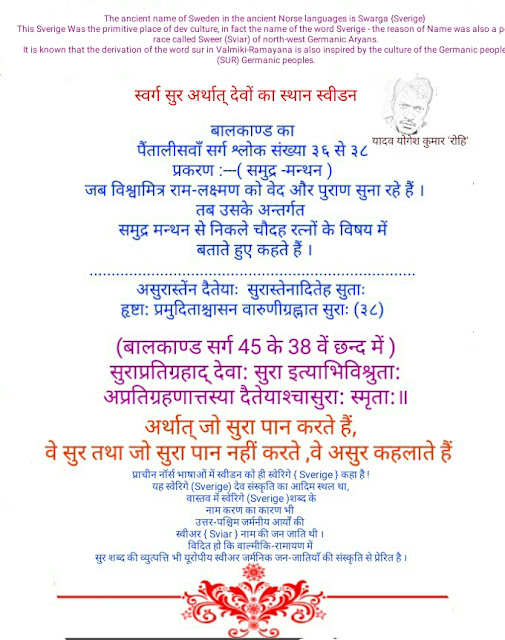 The ancient name of Sweden in the ancient Norse languages is Swarga {Sverige}
This Sverige Was the primitive place of dev culture, in fact the name of the word Sverige - the reason of Name was also a p
race called Sweer (Sviar) of north-west Germanic Aryans.
It is known that the derivation of the word sur in Valmiki-Ramayana is also inspired by the culture of the Germanic people
(SUR) Germanic peoples.
स्वर्ग सुर अर्थात् देवों का स्थान स्वीडन
यादव योगेश कुमार 'रोहि'
बालकाण्ड का
पैंतालीसवाँ सर्ग श्लोक संख्या ३६ से ३८
प्रकरण :---( समुद्र -मन्थन )
जब विश्वामित्र राम-लक्ष्मण को वेद और पुराण सुना रहे हैं ।
तब उसके अन्तर्गत
समुद्र मन्थन से निकले चौदह रत्नों के विषय में
बताते हुए कहते हैं ।
..................................................................
असुरास्तेंन दैतेयाः सुरास्तेनादितेह सुताः
हृष्टा: प्रमुदिताश्चासन वारुणीग्रह्नात सुराः (३८)
(बालकाण्ड सर्ग 45 के 38 वें छन्द में )
सुराप्रतिग्रहाद् देवा: सुरा इत्याभिविश्रुता:
अप्रतिग्रहणात्तस्या दैतेयाश्चासुरा: स्मृता:॥
अर्थात् जो सुरा पान करते हैं,
वे सुर तथा जो सुरा पान नहीं करते ,वे असुर कहलाते हैं
प्राचीन नॉर्स भाषाओं में स्वीडन को ही स्वेरिगे { Sverige } कहा है !
यह स्वेरिगे (Sverige) देव संस्कृति का आदिम स्थल था,
वास्तव में स्वेरिगे (Sverige )शब्द के
नाम करण का कारण भी
उत्तर-पश्चिम जर्मनीय आर्यों की
स्वीअर { Sviar } नाम की जन जाति थी ।
विदित हो कि वाल्मीकि-रामायण में
सुर शब्द की व्युत्पत्ति भी यूरोपीय स्वीअर जर्मनिक जन-जातियाँ की संस्कृति से प्रेरित है ।